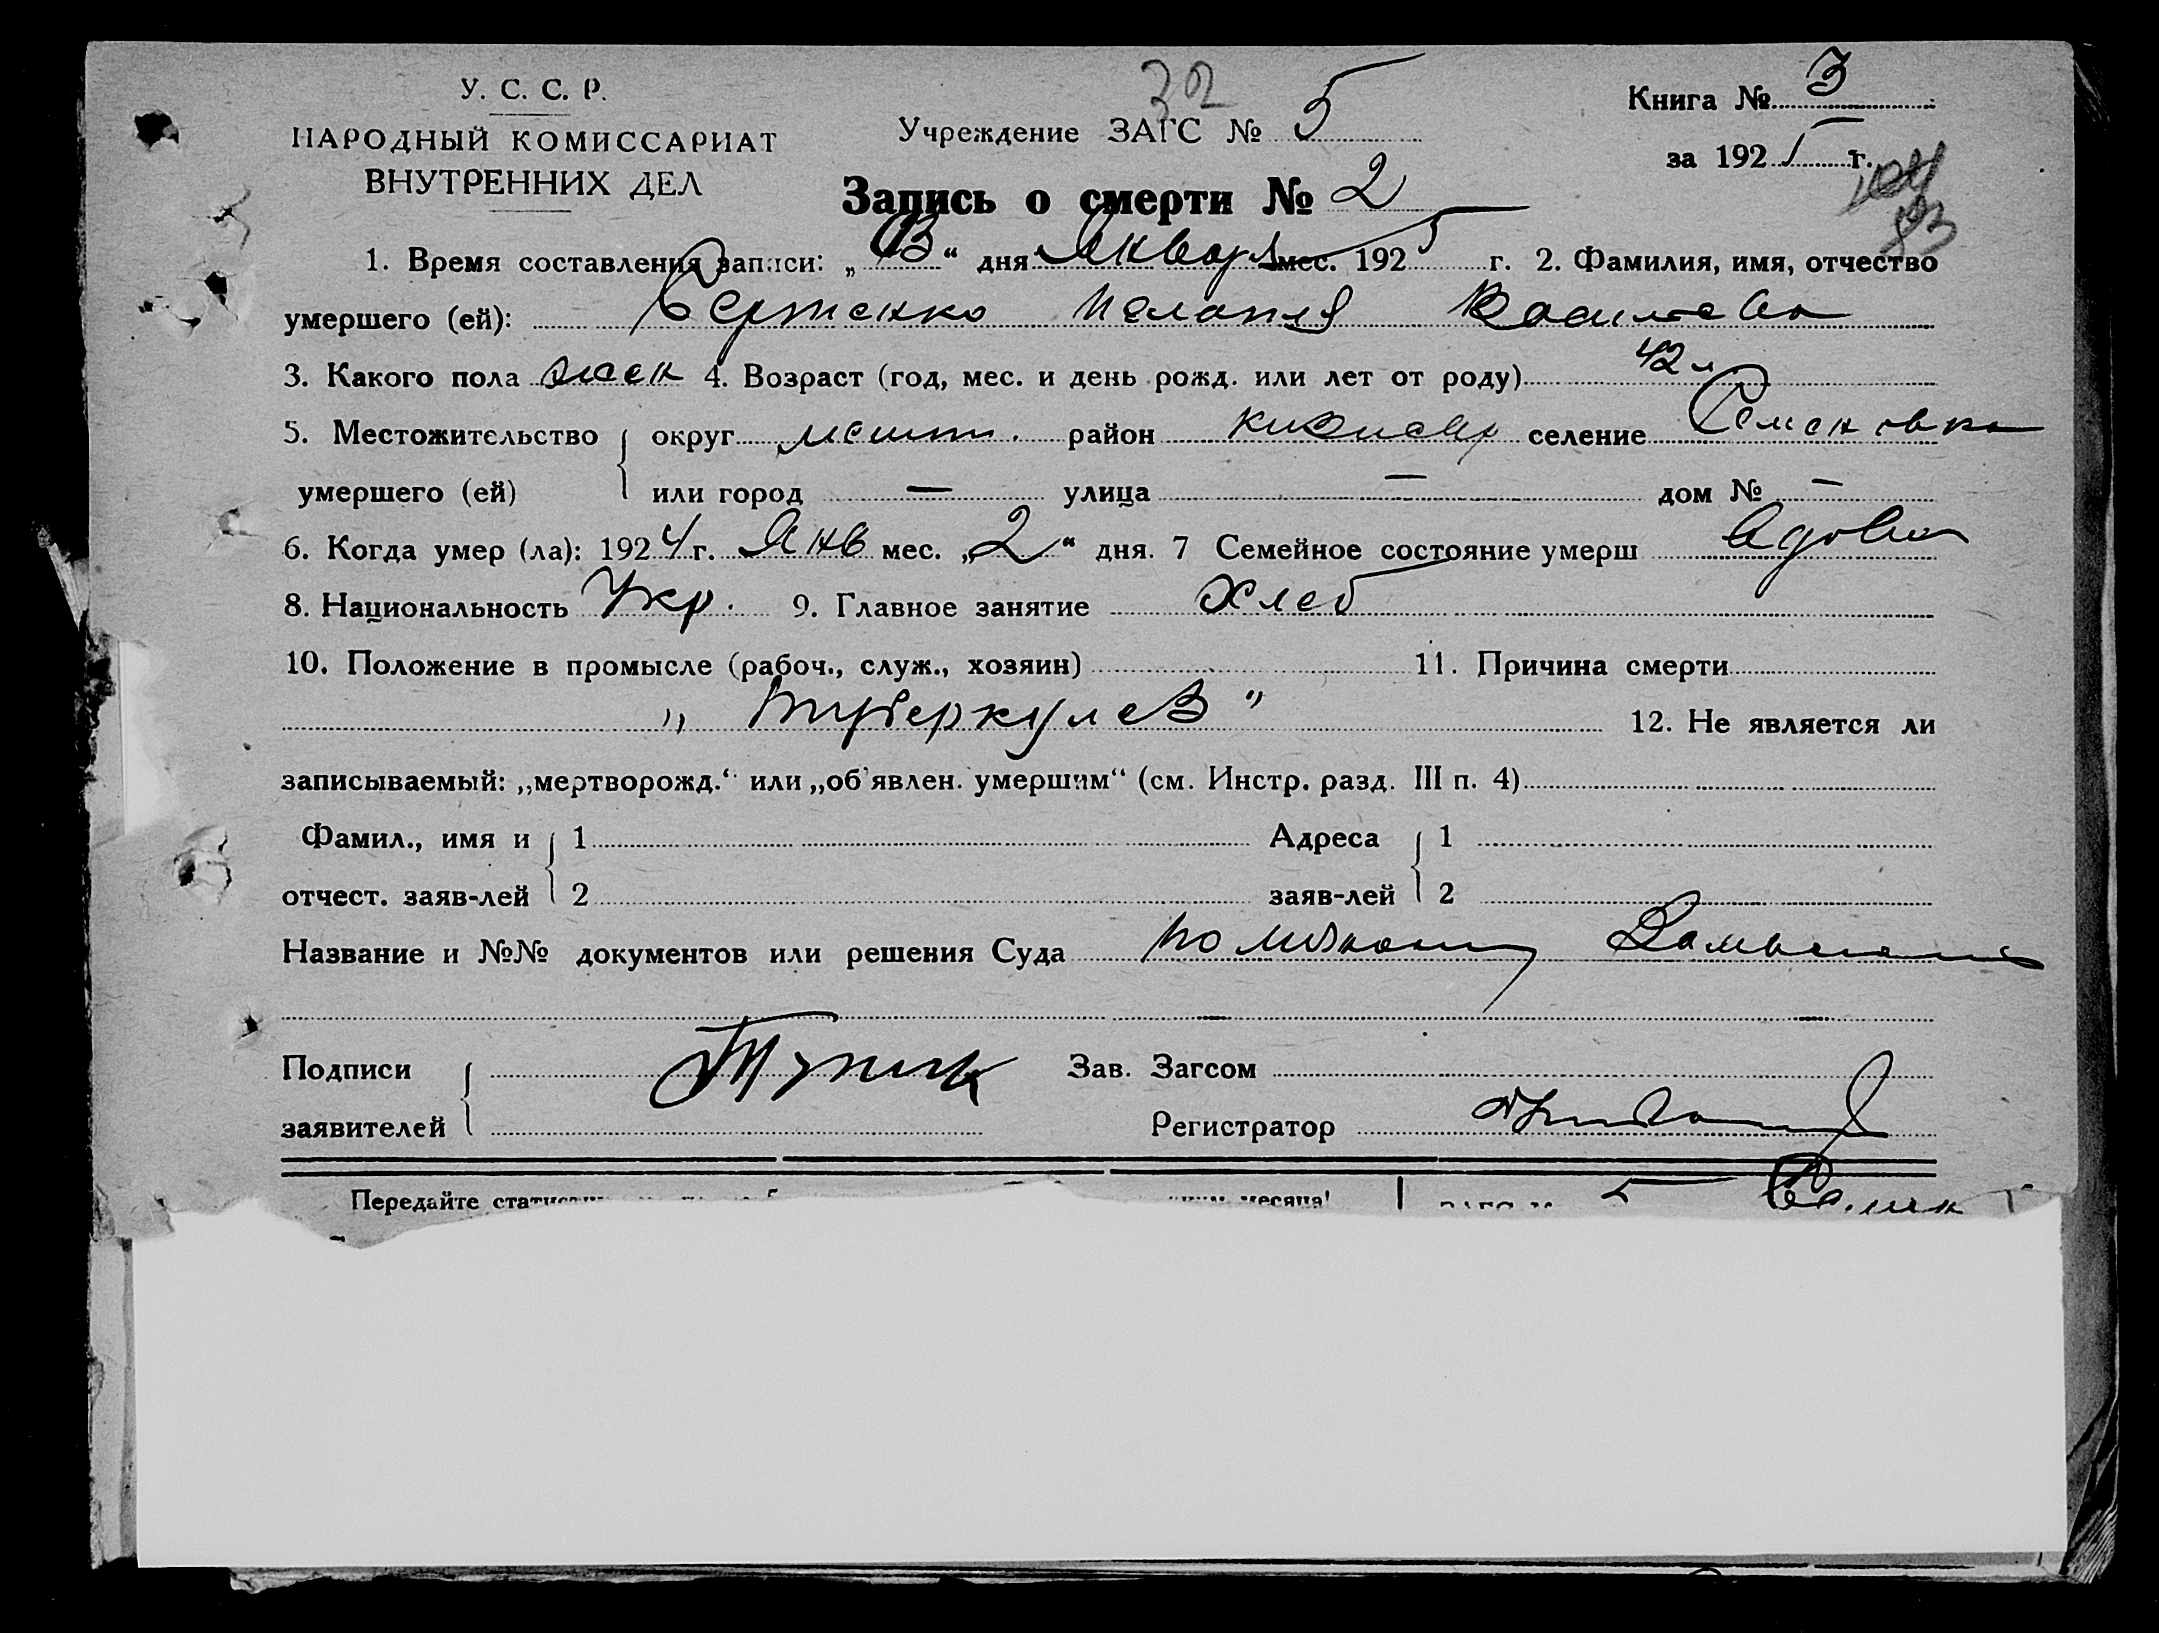 У. С. С. Р.
НАРОДНЫЙ КОМИССАРИАТ
ВНУТРЕННИХ ДЕЛ
32
Учреждение ЗАГС № 5
Книга № 3
за 1925 г.
83
Запись о смерти № 2
1. Время составления записи: „3“ дня Января мес. 1925 г. 2. Фамилия, имя, отчество
умершего (ей): Пелагия
3. Какого пола жен 4. Возраст (год, мес. и день рожд. или лет от роду) 42 л
5. Местожительство округ район селение Семеновка
умершего (ей) или город — улица — дом № —
6. Когда умер (ла): 1924 г. Янв мес. „2“ дня. 7 Семейное состояние умерш вдова
8. Национальность Укр. 9. Главное занятие Хлеб
10. Положение в промысле (рабоч., служ., хозяин) 11. Причина смерти
„Туберкулез“ 12. Не является ли
записываемый: „мертворожд.“ или „об'явлен. умершим“ (см. Инстр. разд. III п. 4)
Фамил., имя и 1 Адреса 1
отчест. заяв-лей 2 заяв-лей 2
Название и №№ документов или решения Суда
Подписи Зав. Загсом
заявителей Регистратор
Передайте месяца!